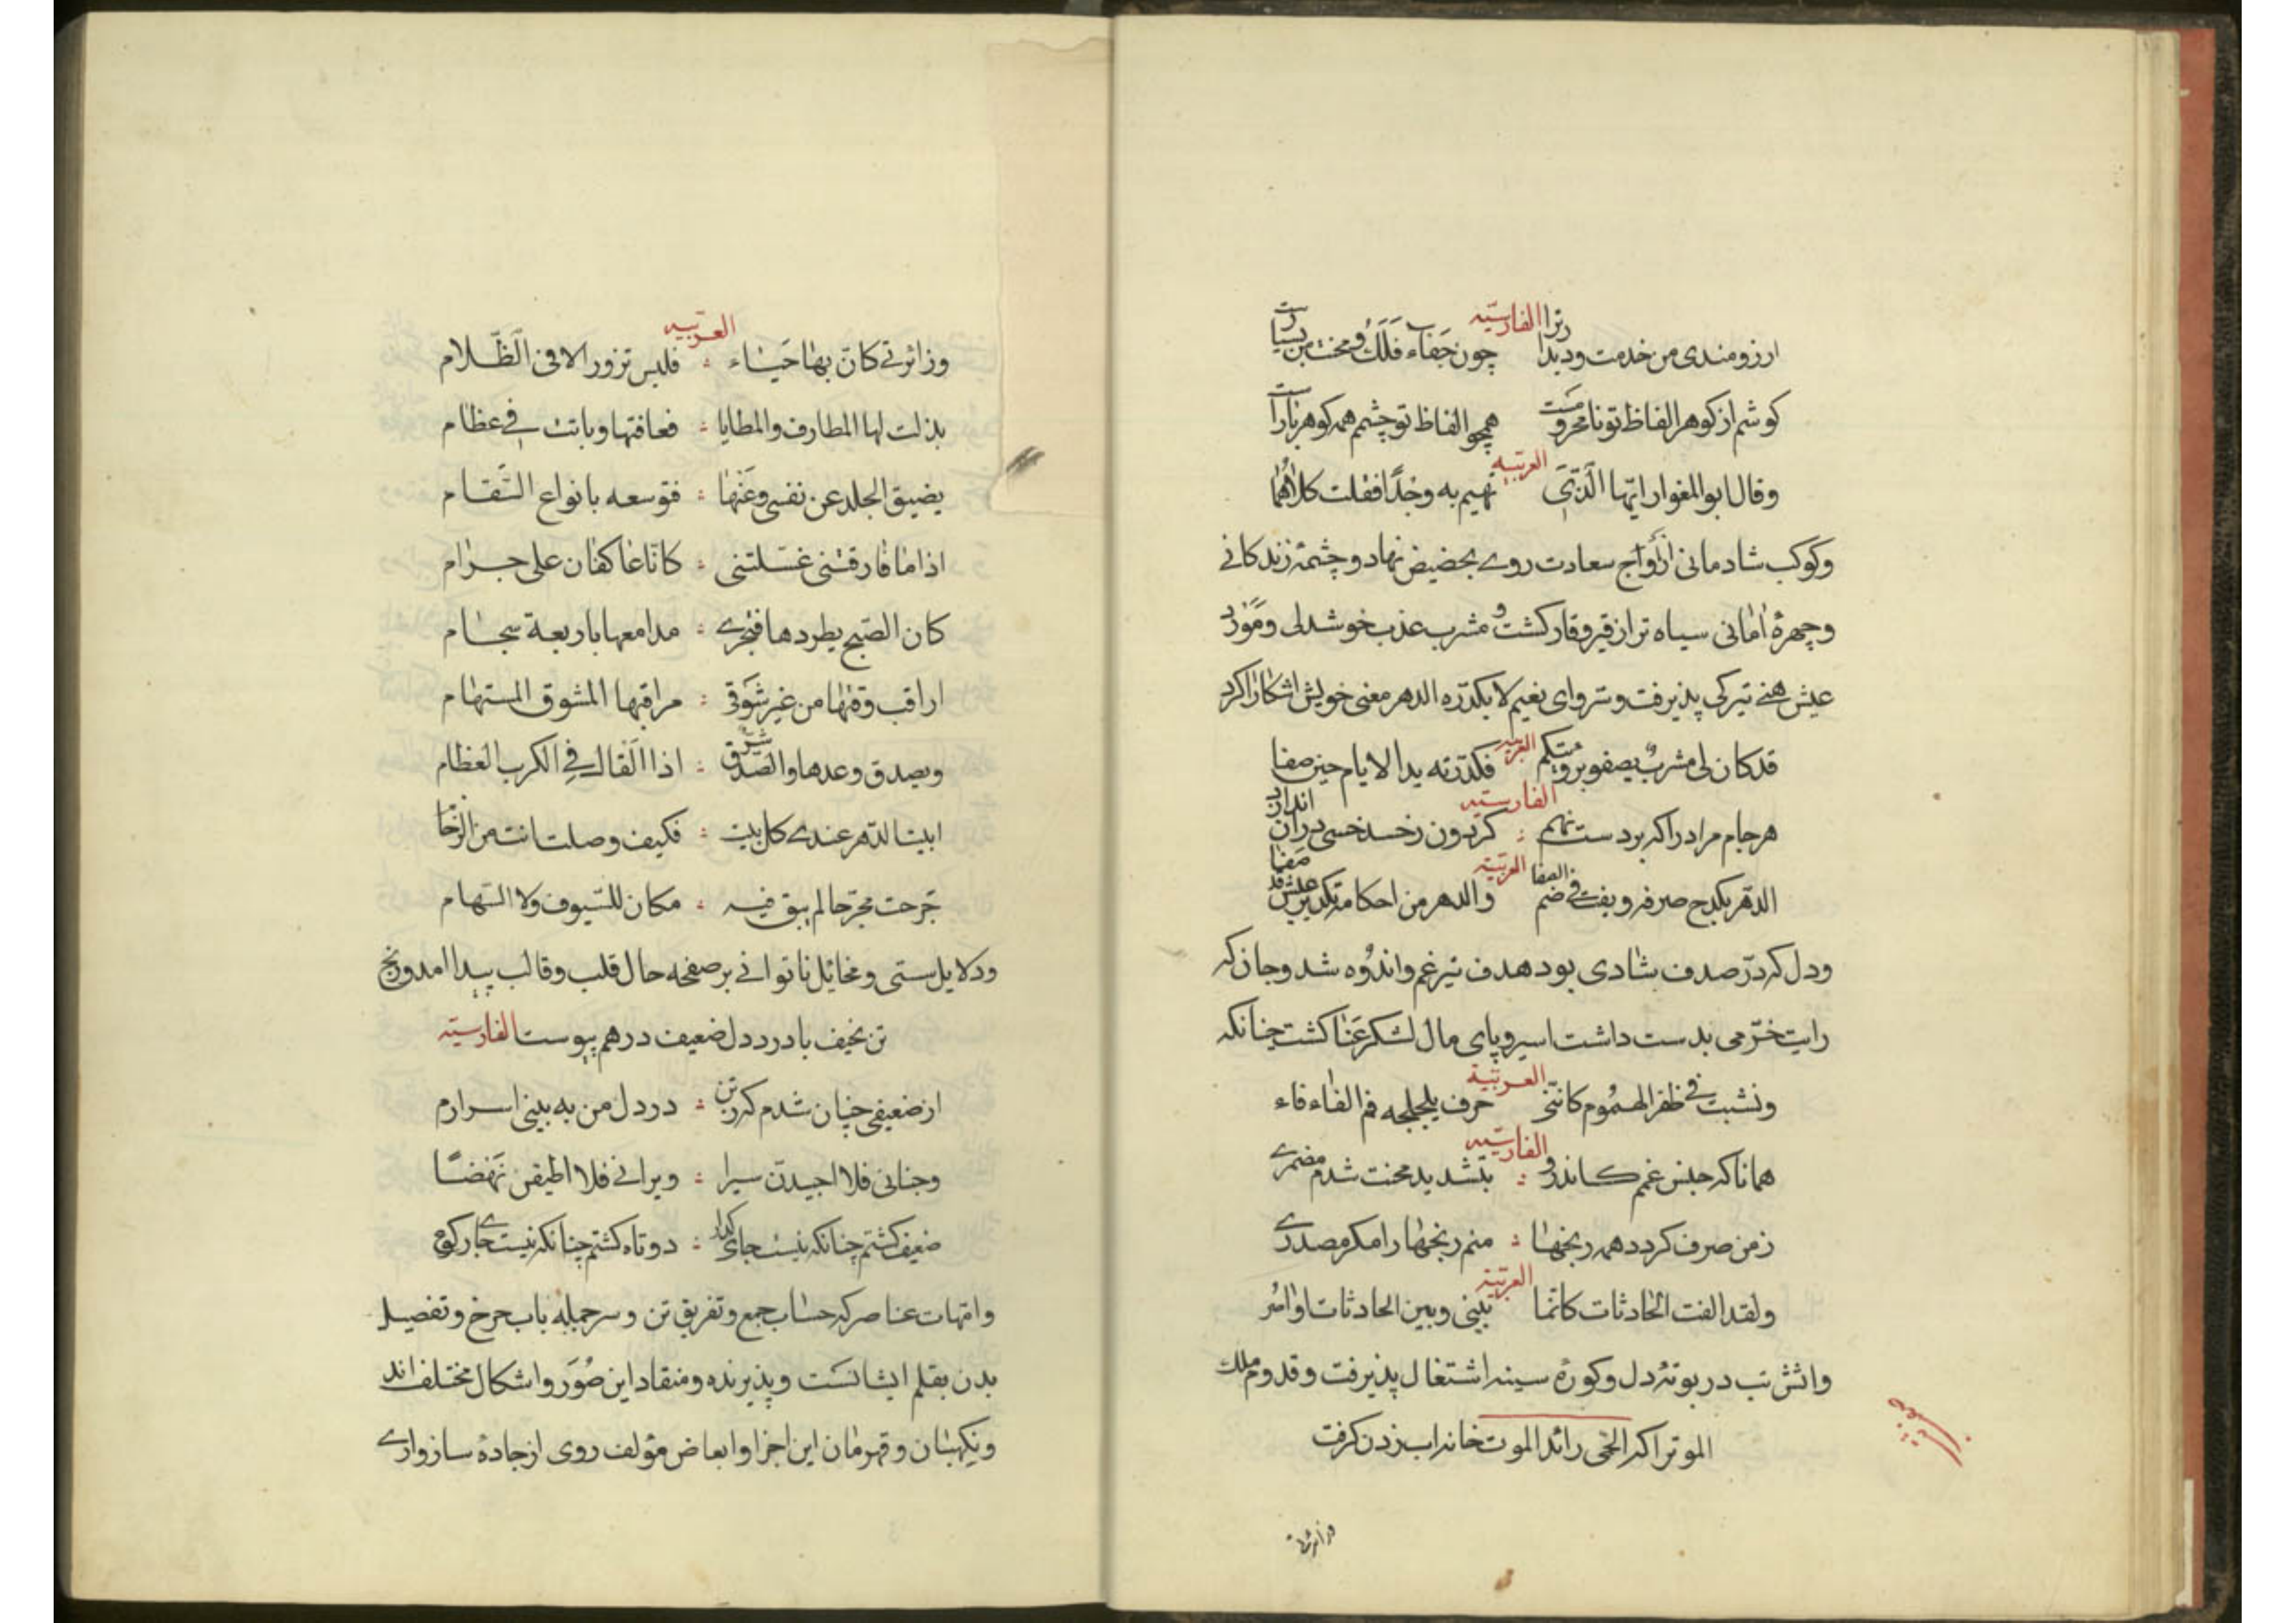 الفارسیّه
ارزومندی من خدمت و دیدار ترا چون جفاء فلک و محنت من بسیارست
کوشم از کوهر الفاظ تو نامحرومست همچو الفاظ تو چشمم همه کوهر بارست
العربیّه
وقال ابوالمغوار ایّها الّذی تهیم به وجدًا فقلت کلاهُما
وکوکب شادمانی از اواج سعادت روے بحضیض نهاد و چشمهٔ زندکانے
وچهرهٔ امانی سیاه تر از قیر و قار کشت و مشرب عذب خوشدلی و مَوْرد
عیش هنے تیرکی پذیرفت و سّر وای نعیم لا یکدّره الدهر معنی خویش اشکارا کرد
العربیه
قد کان لی مشربٌ یصفو برویتکم فکدّرته ید الایام حین صفا
الفارسیّه
هر جام مراد را که بر دست نهم : کردون ز حسد خسی در ان اندازد
العربیّه
والدهر من احکامه تکدیر عیش قد صفا
ودل که درّ صدف شادی بود هدف تیر غم و اندُوه شد و جان که
رایت خرّمی بدست داشت اسیر و پای مال لشکر عَنا کشت چنانکه
العربیّة
ونشبت فے ظفر الهمُوم کانّنی حرف یلجلجه فم الفاء فاء
الفارسیّه
همانا که جنس غمم کاندرو : بتشدید محنت شدم مضمرے
ز من صرف کردد همه رنجها : منم رنجها را مکر مصدرے
العربیّة
ولقد الفت الحادثات کانّما بینی وبین الحادثات اواصُر
واتش تب در بوتهٔ دل و کورهٔ سینه اشتغال پذیرفت و قدوم ملك
الموت را که الحمّی رائد الموت خانه اب زدن کرفت
وزائرتے
العربیّه
وزائرتے کانّ بها حَیاء : فلیس تزور الا فی الظّلام
بذلت لها المطارف والمطایا : فعافتها وباتت فے عظام
یضیق الجلد عن نفسی وعَنها : فتوسعه بانواع السّقام
اذا ما فارقتنی غسّلتنی : کانّا عاکفان علی حرام
کان الصّبح یطردها فتجرے : مدامعها باربعة سجام
اراقب وقتها من غیر شَوْق : مراقبة المشوق المستهام
ویصدق وعدها والصّدق شرّ : اذا القاك فے الکرب العظام
ابنت الدّهر عندے کل بنت : فکیف وصلت انت من الزّحام
جَرحت مجرّحا لم یبق فیه : مکان للسّیوف ولا السّهام
ودلایل سستی و مخائل ناتوانے بر صفحه حال قلب و قالب پیدا امد و رنج
تن نحیف با درد دل ضعیف درهم پیوست الفارسیّه
از ضعیفی چنان شدم که ز تن : در دل من به بینی اسرارم
وجنانی فلا اجیدنّ سیرا : ویرانے فلا اطیقن نَهْضًا
ضعیف کشتم چنانکه نیست جای کدار : دو تاه کشتم چنانکه نیست جای رکوع
وامّهات عناصر که حساب جمع و تفریق تن و سر جمله باب چرخ و تفصیل
بدن بقلم ایشانست و پذیرنده و منقاد این صُوَر و اشکال مختلف اند
ونکهبان و قهرمان این اجزا و ابعاض مؤلف روی از جادهٔ سازوارے